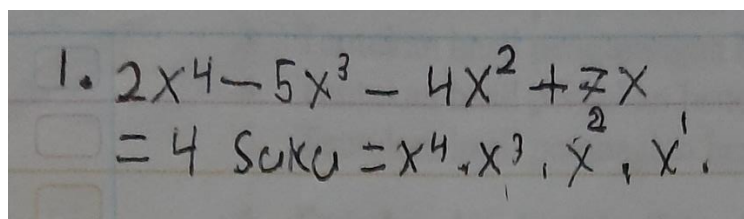 1. 2x⁴ - 5x³ - 4x² + 7x
= 4 Suku = x⁴, x³, x², x¹.